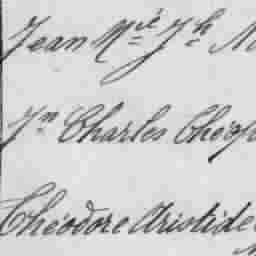 Jean Mie Jh
Jn Charles Théop
Théodore Aristide